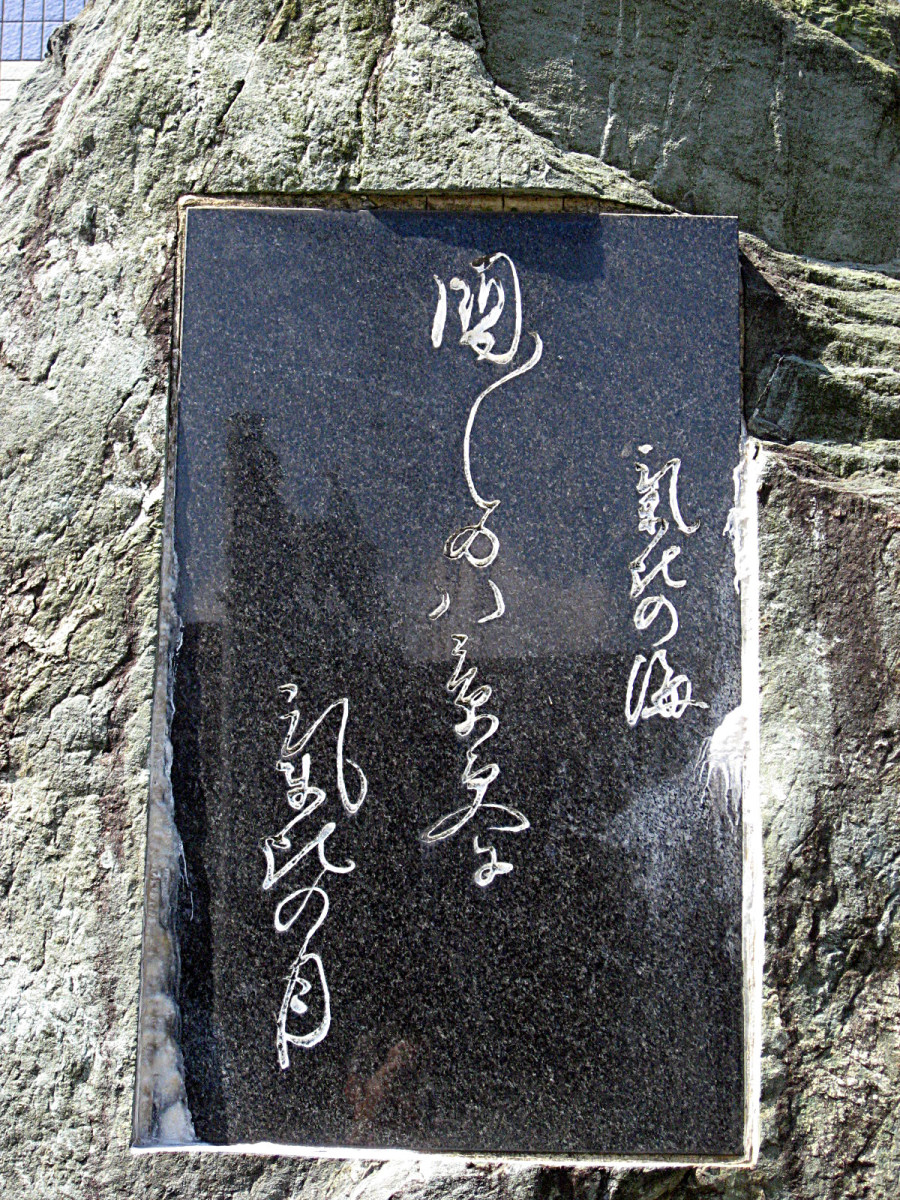 氣比の海
國〱の八景更に
氣比の月